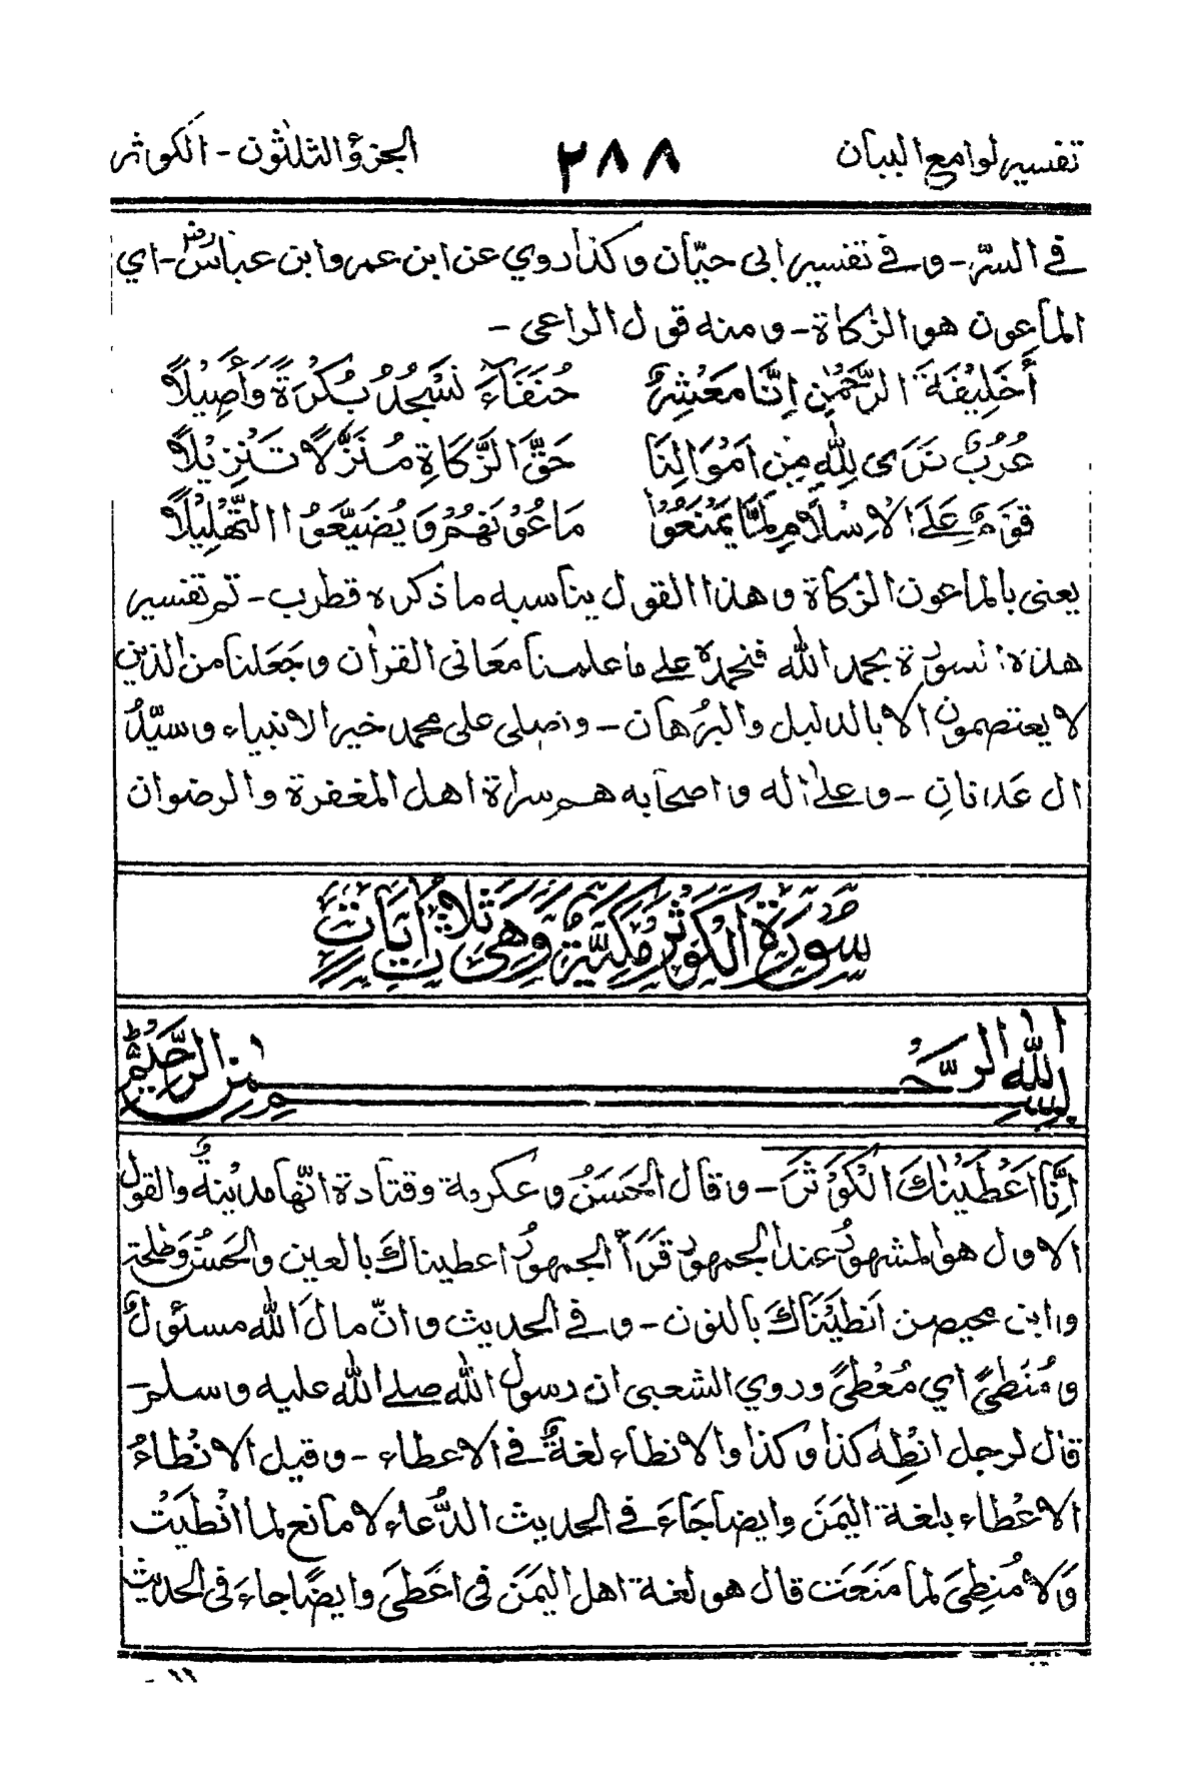 تفسير لوامع البيان ٢٨٨ الجزؤ الثلٰثون - الكوثر
في السرّ - و في تفسير ابى حيّان و كذا روي عن ابن عمر و ابن عباس رض - اي
الماعون هو الزكاة - و منه قول الراعى -
أَخَلِيْفَةَ الرَّحْمٰنِ اِنَّا مَعْشَرٌ حُنَفَاءَ نَسْجُدُ بُكْرَةً وَأَصِيْلًا
عُرُبٌ نَرَى لِلّٰهِ مِن اَمْوَالِنَا حَقَّ الزَّكَاةِ مُنَزَّلًا تَنْزِيْلًا
قَوْمٌ عَلَى الاِسْلَامِ لَمَّا يَمْنَعُوْا مَاعُوْنَهُمْ وَ يُضَيِّعُوْا التَّهْلِيْلًا
يعنى بالماعون الزكاة و هذا القول يناسبه ما ذكره قطرب - تم تفسير
هذه السورة بحمد الله فنحمده على ما علمنا معانى القراٰن و جعلنا من الذين
لا يعتصمون الا بالدليل والبرهان - و اصلى على محمد خير الانبياء و سيّد
ال عدنان - و علٰى اله و اصحابه هم سراة اهل المغفرة و الرضوان
سُوْرَةُ الْكَوْثَرِ مَكِّيَّةٌ وَّهِيَ ثَلَاثُ اٰيَاتٍ
بِسْمِ اللهِ الرَّحْمٰنِ الرَّحِيْمِ
اِنَّا اَعْطَيْنٰكَ الْكَوْثَرَ - و قال الحَسَنُ و عكرمة و قتادة انّها مدينةٌ و القول
الاول هو المشهورُ عند الجمهور قَرَأَ الجمهورُ اعطيناكَ بالعين والحَسَنُ وَطلحة
و ابن محيصن اَنطَيْنَاكَ بالنون - و في الحديث و انّ مالَ الله مسئولٌ
و مُنْطىً اي مُعْطىً و روي الشعبى ان رسول الله صلى الله عليه و سلم -
قال لرجل انْطِهْ كذا و كذا و الانطاء لغةٌ في الاعطاء - و قيل الانْطاءُ
الاعْطاء بلغة اليَمَن و ايضا جَاءَ في الحديث الدُّعاء لا مانع لما انْطَيْتَ
وَلا مُنطِيَ لما مَنَعَت قال هو لغة اهل اليَمَن فى اعَطَى و ايضًا جاءَ فى الحديث